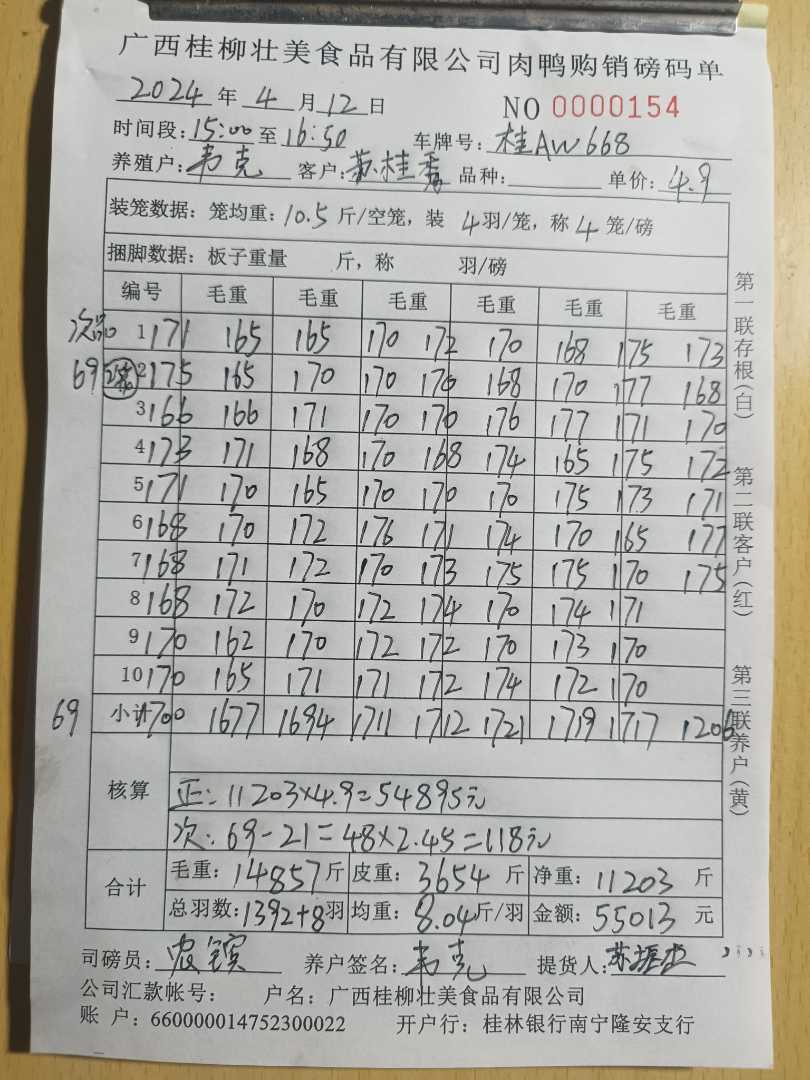 广西桂柳壮美食品有限公司肉鸭购销磅码单
2024年4月12日 NO 0000154
时间段:15:00至16:50 车牌号:桂AW668
养殖户:韦克 客户:苏桂秀 品种: 单价:4.9
装笼数据:笼均重:10.5斤/空笼,装 4羽/笼,称4笼/磅
捆脚数据:板子重量 斤,称 羽/磅
编号 毛重 毛重 毛重 毛重 毛重 毛重
次品 1 171 165 165 170 172 170 168 175 173
69 2 175 165 170 170 170 168 170 177 168
3 166 166 171 170 170 176 177 171 170
4 173 171 168 170 168 174 165 175 172
5 171 170 165 170 170 170 175 173 171
6 168 170 172 176 171 174 170 165 177
7 168 171 172 170 173 175 175 170 175
8 168 172 170 172 174 170 174 171
9 170 162 170 172 172 170 173 170
10 170 165 171 171 172 174 172 170
69 小计 1700 1677 1694 1711 1712 1721 1719 1717 1206
核算
正:11203×4.9=54895元
次:69-21=48×2.45=118元
合计
毛重:14857斤 皮重:3654斤 净重:11203斤
总羽数:1392+8羽 均重:8.04斤/羽 金额:55013元
司磅员: 养户签名:韦克 提货人:苏
公司汇款帐号: 户名:广西桂柳壮美食品有限公司
账 户:660000014752300022 开户行:桂林银行南宁隆安支行
第一联存根(白)
第二联客户(红)
第三联养户(黄)